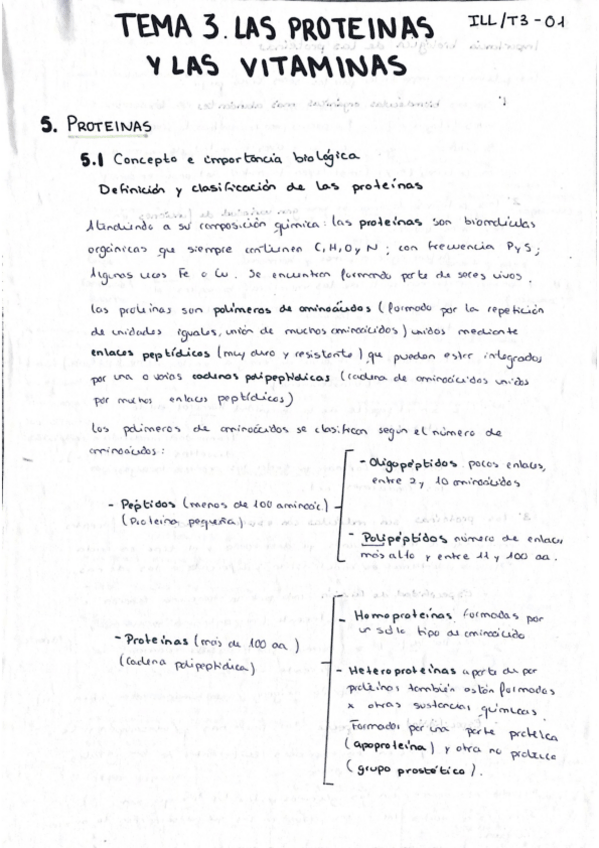 TEMA 3. LAS PROTEINAS
ILL/T3-01
Y LAS VITAMINAS
5. PROTEINAS
5.1 Concepto e importancia biológica
Definición y clasificación de las proteínas
Atendiendo a su composición química: las proteínas son biomoléculas
orgánicas que siempre contienen C, H, O y N; con frecuencia P y S;
Algunas veces Fe o Cu. Se encuentran formando parte de seres vivos.
Las proteínas son polímeros de aminoácidos (formado por la repetición
de unidades iguales, unión de muchos aminoácidos) unidos mediante
enlaces peptídicos (muy duro y resistente) que pueden estar integradas
por una o varias cadenas polipeptídicas (cadena de aminoácidos unidos
por muchos enlaces peptídicos)
Los polímeros de aminoácidos se clasifican según el número de
aminoácidos:
- Péptidos (menos de 100 aminoác.)
(Proteína pequeña)
- Oligopéptidos. pocos enlaces,
entre 2 y 10 aminoácidos
- Polipéptidos número de enlaces
más alto y entre 11 y 100 aa.
- Proteínas (más de 100 aa)
(cadena polipeptídica)
- Homoproteínas. formadas por
un solo tipo de aminoácido
- Heteroproteínas aparte de por
proteínas también están formadas
x otras sustancias químicas.
Formadas por una parte proteica
(apoproteína) y otra no proteica
(grupo prostético).